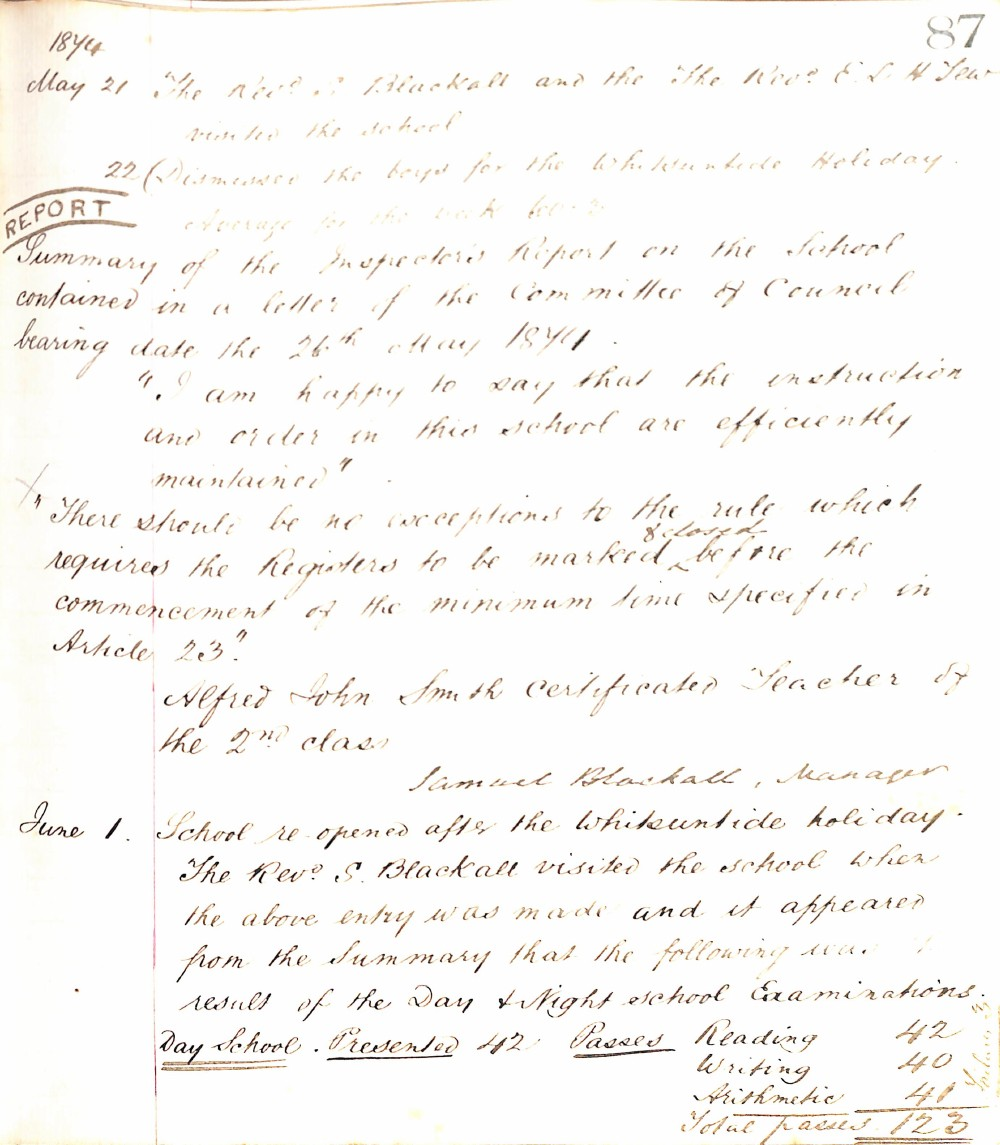 87
1874
May 21 The Revd S Blackall and the The Revd E. L H Tew
visited the school
22 (Dismissed the boys for the Whitsuntide Holiday.
Average for the week
REPORT
Summary of the Inspector's Report on the School
contained in a letter of the Committee of Council
bearing date the 26th May 1874.
"I am happy to say that the instruction
and order in this school are efficiently
maintained"
"There should be no exceptions to the rule which
& closed
requires the Registers to be marked ‸ before the
commencement of the minimum time specified in
Article 23".
Alfred John Smith Certificated Teacher of
the 2nd class
Samuel Blackall, Manager
June 1. School re-opened after the Whitsuntide holiday.
The Revd S. Blackall visited the school when
the above entry was made and it appeared
from the Summary that the following was
result of the Day & Night school Examinations.
Day School. Presented 42 Passes Reading 42
Writing 40
Arithmetic 41
Total passes 123
Failures 3